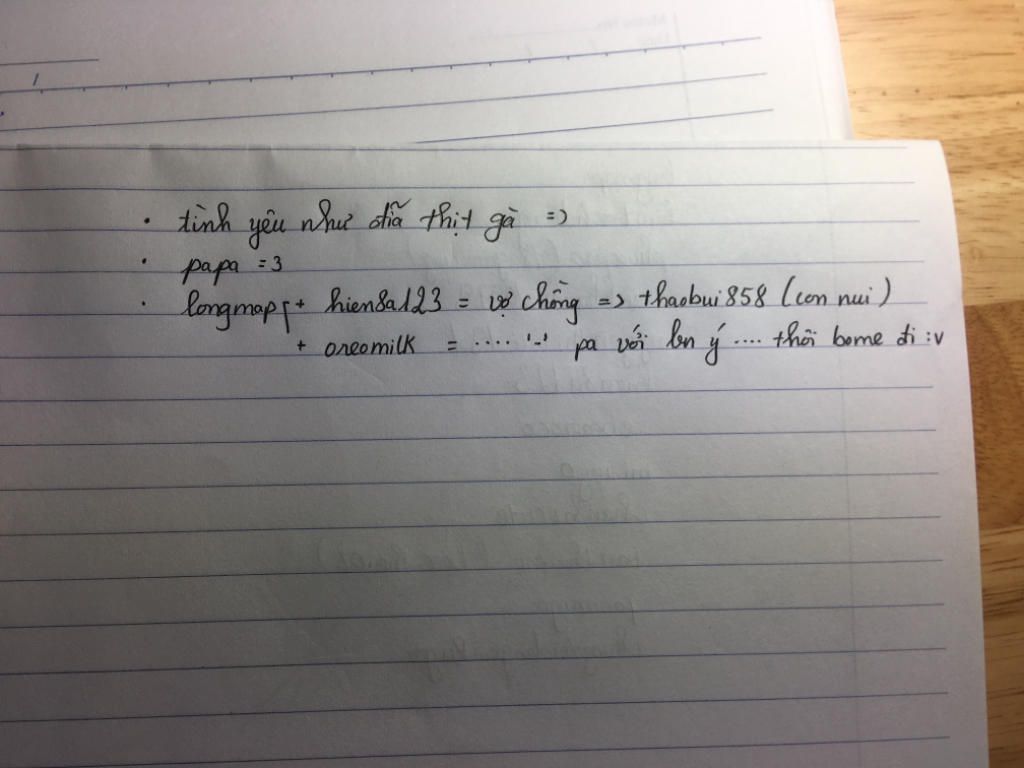 • tình yêu như đĩa thịt gà =)
• papa =3
• longmap [+ hien8a123 = vợ chồng => thaobui858 (con nui)
+ oreomilk = .... '-' pa với bn ý .... thôi bome đi :v